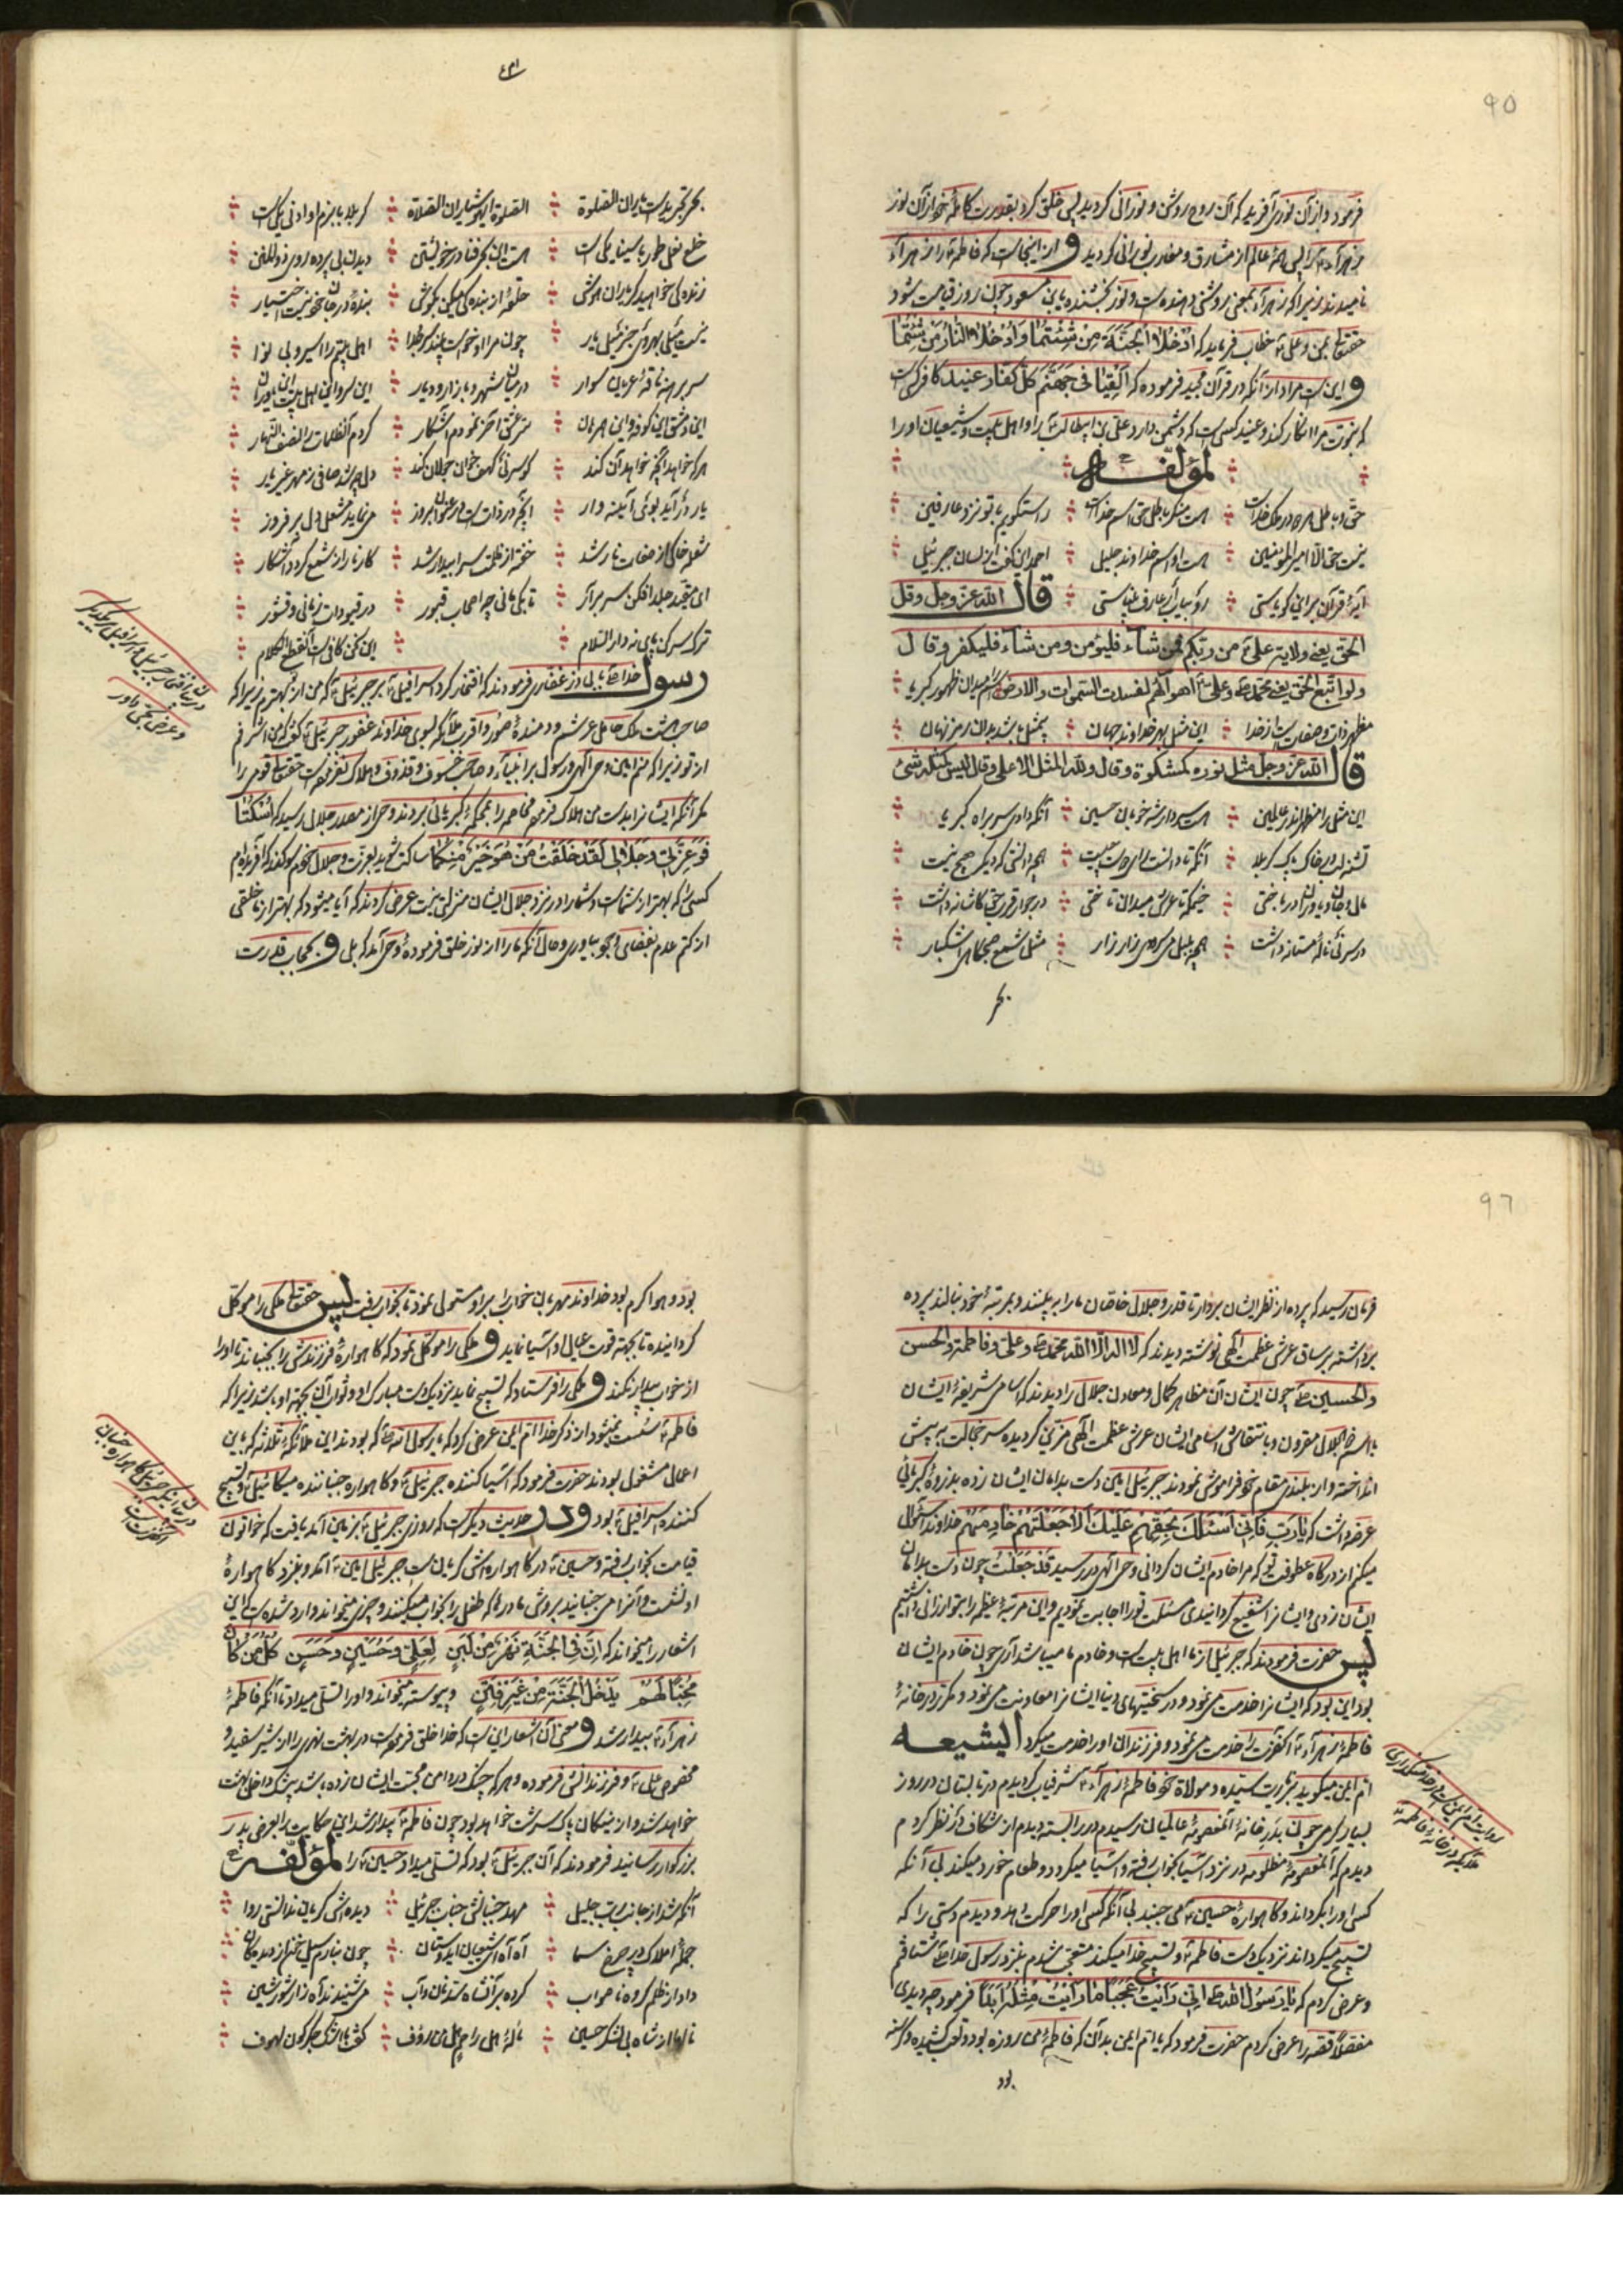 ٩٥
فرمود و از آن نوری آفرید که آن روح روشن و نورانی گردید پس خلق کرد بقدرت کامله خود از آن نور
زهرآء را پس همه عالم از مشارق و مغارب نورانی گردید و از اینجاست که فاطمه را زهرآء
نامیدند زیرا که زهرآء بمعنی روشنی دهنده است و نور بخشنده یابن مسعود چون روز قیامت شود
حقتعالی بمن و علی خطاب فرماید که اُدْخُلا الجَنَّةَ مَنْ شِئْتُما وَاَدْخِلا النّارَ مَنْ شِئْتُما
و این است مراد از آنکه در قرآن مجید فرموده که اَلْقِیا فی جَهَنَّمَ کُلَّ کَفّارٍ عَنید کافر کسی است
که نبوت مرا انکار کند و عنید کسی است که دشمن دارد علی بن ابیطالب را و اهل بیت و شیعیان او را
لمؤلّفه
حق و باطل هر دو در ملک خداست ؞ هست منکر باطل حق اسم خداست ؞ راست گویم با تو نزد عارفین
نیست حق الّا امیر المؤمنین ؞ هست او اسم خداوند جلیل ؞ احمد این گفت از لسان جبرئیل
آیهٔ قرآن بر این گویاستی ؞ قال الله عزّ وجل وقل
الحق یعنی ولایة علی من ربّکم فمن شآء فلیؤمن ومن شآء فلیکفر وقال
ولو اتّبع الحق یعنی محمّد وعلی اهوآئهم لفسدت السّموات والارض
مظهر ذات و صفات است از خدا ؞ این مثل بهر خداوند جهان ؞
قال الله عزّ وجل مثل نوره کمشکوة وقال ولله المثل الاعلی وقال لیس کمثله شیء
این مثل را مظهر اندر عالمین ؞ هست سردار شه خوبان حسین ؞ آنکه دادی سر براه کبریا
تشنه لب در خاک پاک کربلا ؞
؞ خیمه تا عرش میدان تاختی ؞
در سر نی نالهٔ مستانه داشت ؞ همچو بلبل می سرودی زار زار ؞ مثل شمع صبحگاهی اشکبار
بحر
بحر تجرید است یاران الصّلوة ؞ الصّلوة ای هوشیاران الصّلاة ؞ کربلا یا بزم او ادنی یکی است
خلع نعلی طور یا سینا یکی است ؞ هست این بحر فنا در خویشتن ؞ دیدن بی پرده روی ذوالمنن
؞ حلقه از بندگی میکن بگوش ؞
؞ چون مرا او خواست ؞ اهل بیتم را اسیر و بی نوا
سر برهنه ناقهٔ عریان سوار ؞ در میان شهر و بازار و دیار ؞
این دمشق این کوفه و این ؞ سرّ عشق آخر نمودم آشکار ؞ کردم الظلمات را نصف النّهار
هر که خواهد آنچه خواهد آن کند ؞ ؞
یار در آید بوی آینه وار ؞ ؞ می نماید مشعل دل بر فروز
شعله خاکی از صفات نار شد ؞ خفته از ظلمت سرا بیدار شد ؞ کار نار از شمع گردد آشکار
؞ تا یکی مانی چو اصحاب قبور ؞ در قیودات زمانی و قشور
ترک سر کن پای نه دار السّلام ؞ ؞ این سخن کافی است انقطع الکلام
رسول خدا یا اباذر غفاری فرمودند که افتخار کرد اسرافیل بر جبرئیل که من از تو بهترم زیرا که
صاحب هشت ملک حامل عرشم و دمندهٔ صور و اقرب ملآئکه بسوی خداوند غفور جبرئیل گفت که من اشرفم
از تو زیرا که منم امین وحی الهی و رسول بر انبیآء و صاحب خسوف و قذوف و هلاک نفرموده است حقتعالی قومی را
مگر آنکه ایشان بدست من هلاک فرمود مخاصمه را بمحکمهٔ کبریائی بردند وحی از مصدر جلال رسید که اُسْکُتا
فَوَعِزَّتی وَجَلالی لَقَدْ خَلَقْتُ مَنْ هُوَ خَیْرٌ مِنْکُما ساکت شوید بعزت و جلال خودم سوگند که آفریده ام
کسی را که بهتر از شماست و شما را در نزد جلال ایشان منزلتی نیست عرض کردند که آیا میشود که بهتر از ما خلقی
از کتم عدم بفضای وجود بیاوری و حال آنکه ما را از نور خلق فرمودهٔ وحی آمد که بلی و بحجاب قدرت
در بیان افتخار جبرئیل و اسرافیل بر یکدیگر
٩٦
فرمان رسید که پرده از نظر ایشان بردار تا قدر و جلال خاصّان ما را ببینند و بمرتبهٔ خود ننالند پرده
برداشته بر ساق عرش عظمت الهی نوشته دیدند که لا اله الّا الله محمّد وعلی وفاطمة والحسن
والحسین چون ایشان آن مظاهر کمال و معادن جلال را دیدند که اسامی شریفهٔ ایشان
با اسم ذو الجلال مقرون و بانتقاش اسامی ایشان عرش عظمت الهی مزیّن گردیده سر خجالت به پیش
انداخته و از بلندی مقام خود فراموش نمودند جبرئیل امین دست بدامان ایشان زده بذروهٔ کبریائی
عرضه داشت که یا رَبِّ فَاِنّی اَسْئَلُکَ بِحَقِّهِمْ عَلَیْکَ اِلّا جَعَلْتَنی خادِمَهُمْ خداوندا سئوال
میکنم از درگاه عطوفت تو که مرا خادم ایشان گردانی وحی الهی در رسید قَدْ جَعَلْتُ چون دست بدامان
ایشان زدی و ایشانرا شفیع گردانیدی مسئلت تو را اجابت نمودیم و این مرتبهٔ عظیمه را بتو ارزانی داشتیم
پس حضرت فرمودند که جبرئیل از ما اهل بیت است و خادم ما میباشد آری چون خادم ایشان
بود این بود که ایشانرا خدمت می نمود و در سختیهای دنیا ایشانرا معاونت می نمود و مکرّر در خانهٔ
فاطمه زهرآء آنحضرت را خدمت می نمود و فرزندان او را خدمت میکرد الیشیعه
امّ ایمن میگوید بزیارت سیّده و مولاة خود فاطمه زهرآء شرفیاب گردیدم در تابستان در روز
بسیار گرمی چون بدر خانهٔ آن معصومهٔ عالمیان رسیدم در را بسته دیدم از شکاف در نظر کردم
دیدم که آن معصومهٔ مظلومه در نزد آسیا بخواب رفته و آسیا میگردد و طعام خورد میکند بی آنکه
کسی او را بگرداند و گاهوارهٔ حسین می جنبد بی آنکه کسی او را حرکت بدهد و دیدم دستی را که
تسبیح میگرداند نزدیک دست فاطمه و تسبیح خدا میکند متعجّب شدم بنزد رسول خدا شتافتم
و عرض کردم که یا رَسُولَ الله اِنّی رَاَیْتُ عَجَباً ما رَاَیْتُ مِثْلَهُ اَبَداً فرمود چه دیدی
مفصّلاً قصّه را عرض کردم حضرت فرمود که یا امّ ایمن بدان که فاطمه من روزه بود و تعب کشیده و گرسنه
بود
بود و هوا گرم بود خداوند مهربان خواب را بر او مستولی نمود تا بخواب رفت پس حقتعالی ملکی را موکّل
گردانیده تا بجهة قوت عیال او آسیا نماید و ملکی را موکّل نمود که گاهوارهٔ فرزندش را بجنباند تا او را
از خواب بیدار نکند و ملکی را فرستاد که تسبیح نماید نزدیک دست مبارک او و ثواب آن بجهة او باشد زیرا که
فاطمه سُست نمیشود از ذکر خدا امّ ایمن عرض کرد که یا رسول الله که بودند این ملآئکهٔ ثلاثه که باین
اعمال مشغول بودند حضرت فرمود که آسیا کننده جبرئیل و گاهواره جنباننده میکآئیل و تسبیح
کننده اسرافیل بود و در حدیث دیگر است که روزی جبرئیل بزمین آمد یافت که خواتون
قیامت بخواب رفته و حسین در گاهواره اش گریان است جبرئیل امین آمد و بنزد گاهوارهٔ
او نشست و آنرا می جنبانید بروش مادرها که طفلی را بخواب میکنند و چیزی میخواند وارد شده است که این
اشعار را میخواند که اِنَّ فی الجَنَّةِ نَهْرٌ مِنْ لَبَنٍ لِعَلِیٍّ وَحُسَیْنٍ وَحَسَنٍ کُلُّ مَنْ کانَ
مُحِبّاً لَهُمْ یَدْخُلُ الجَنَّةَ مِنْ غَیْرِ فِتَنٍ و پیوسته میخواند و او را تسلّی میداد تا آنکه فاطمهٔ
زهرآء بیدار شد و معنی آن اشعار این است که خدا خلق فرموده است در بهشت نهری را از شیر سفید و
مخصوص علی و فرزندانش فرموده و هر که چنگ در دامن محبّت ایشان زده باشد بی شک داخل بهشت
خواهد شد و از نیکان پاک سرشت خواهد بود چون فاطمه بیدار شد این حکایت را بعرض پدر
بزرگوار رسانید فرمودند که آن جبرئیل بود که تسلّی میداد حسین را لمؤلّفه
آنکه شد از جانب ربّ جلیل ؞ مهد جنبانش جناب جبرئیل ؞ دیده اش گریان ندانستی روا
جملهٔ املاک در چرخ سما ؞ آه آه ای شیعیان ای دوستان ؞
داد از ظلم گروه نا صواب ؞ کرده بر آن شاه سدّ نان و آب ؞ می شنیدند آه زار شور شین
ناله از شاه بی لشکر حسین ؞ ؞
در بیان آنکه جبرئیل گاهواره جنبان
آنحضرت است